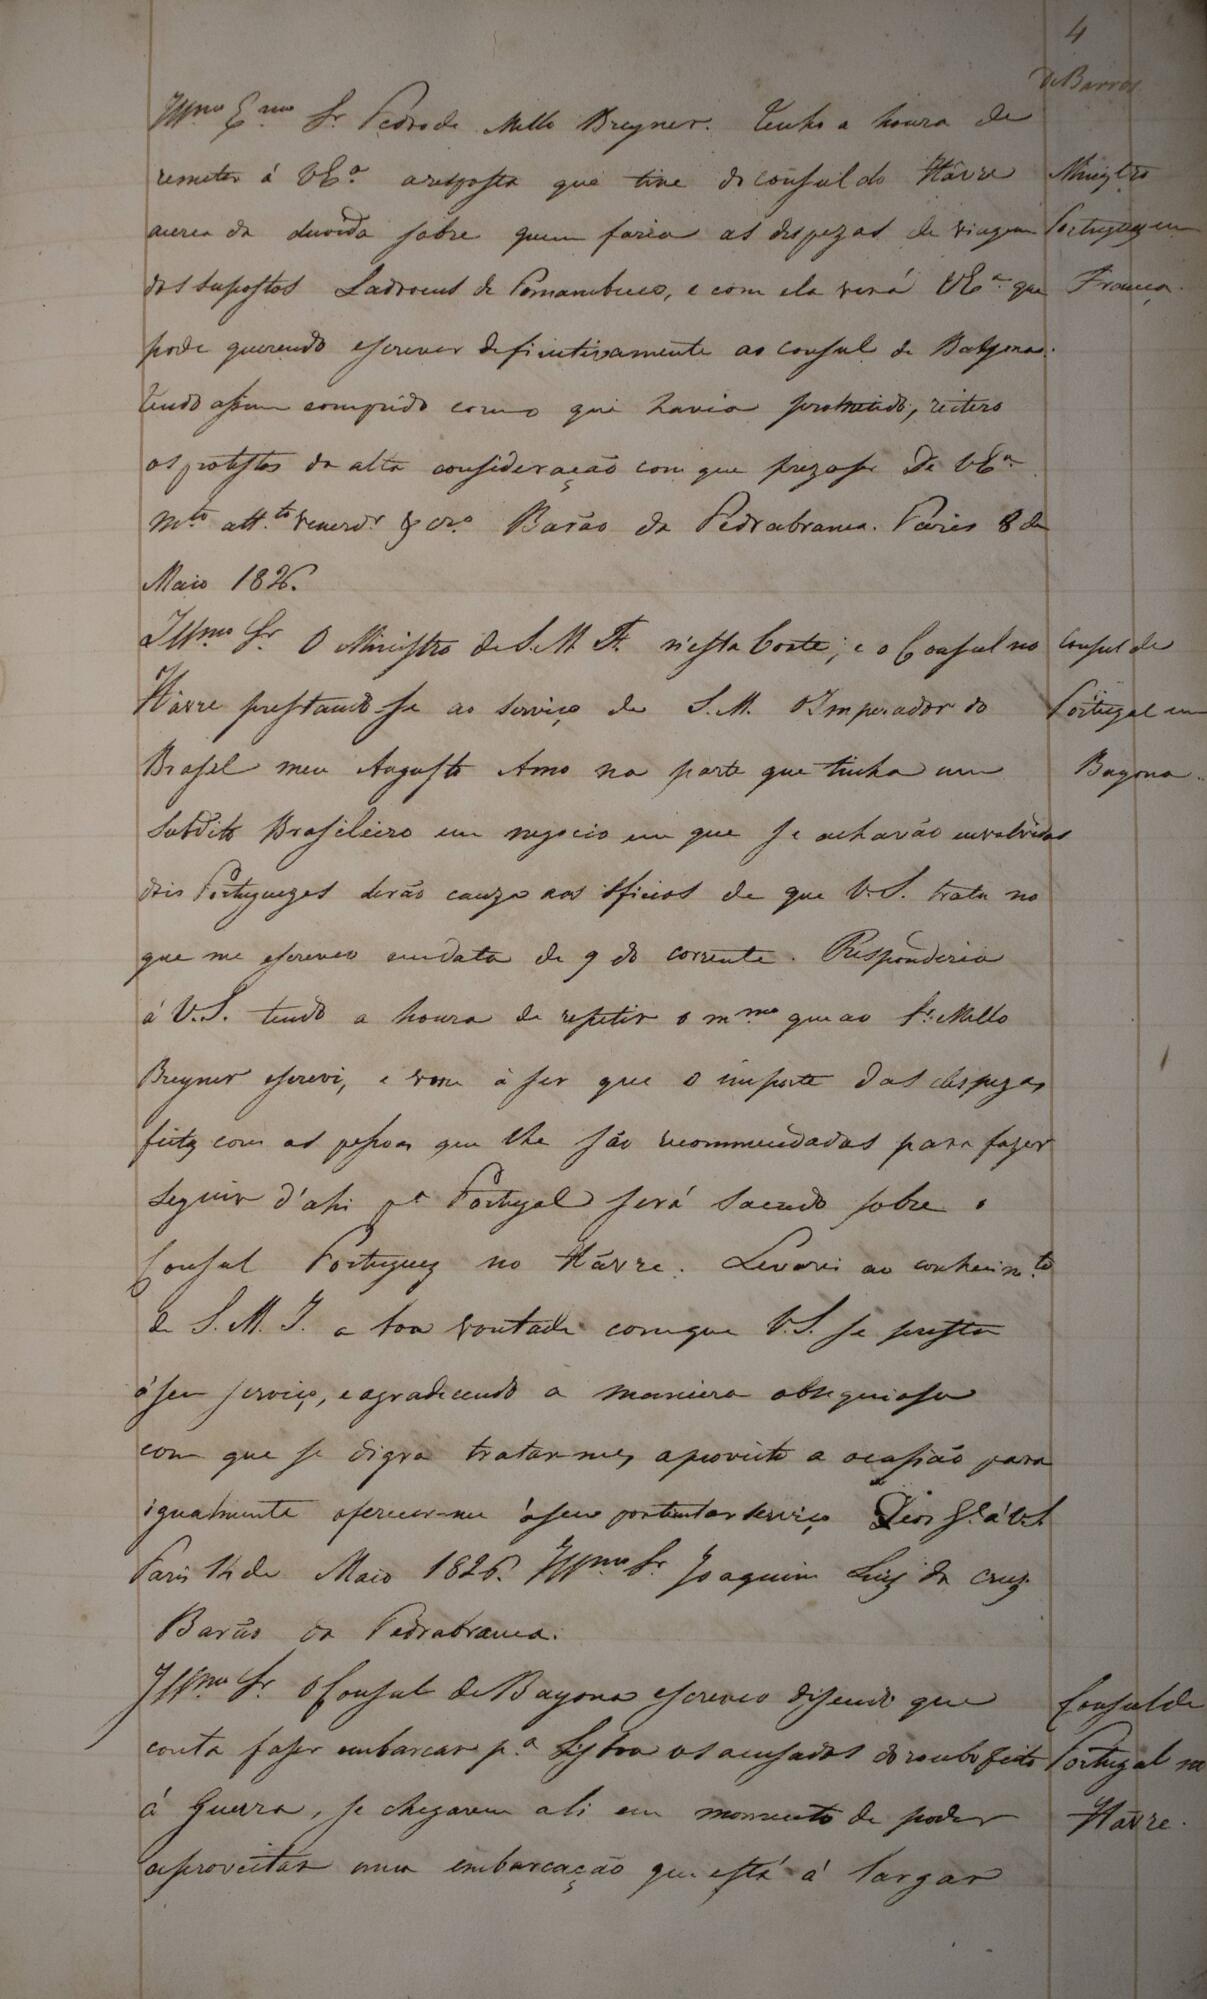 4
de Barros
Illmo Exmo Sr. Pedro de Mello Breyner. Tenho a honra de
remeter á VEa. aresposta que tive do consul do Hâvre
acerca da duvida sobre quem faria as despezas de viagem
dos supostos Ladroens de Pernambuco, e com ela verá VEa. que
pode querendo escrever definitivamente ao consul de Bayona.
Tendo assim comprido com o que havia prometido, reitero
os protestos da alta consideração com que prezo ser De VEa.
mto. attto. venerdr. & cro. Barão da Pedrabranca. Paris 8 de
Maio 1826.
Ministro
Portuguez em
França.
Illmo Sr. O Ministro de S. M. F. n'esta Corte, e o Consul no
Hâvre prestando-se ao serviço de S. M. O Imperador do
Brasil meu Augusto Amo na parte que tinha um
subdito Brasileiro em negocio em que se achavão envolvidos
dois Portuguezes derão cauza aos officios de que V. S. trata no
que me escreveo em data de 9 do corrente. Responderia
á V. S. tendo a honra de repetir o mmo que ao Sr. Mello
Breyner escrevi, e vem á ser que o importe das despezas
feitas com as pessoas que lhe são recommendadas para fazer
seguir d'ahi pa Portugal será sacado sobre o
Consul Portuguez no Hâvre. Levarei ao conhecimto.
de S. M. I. a boa vontade com que V. S. se presta
ó seu serviço, e agradecendo a maneira obsequiosa
com que se digna tratar-me, aproveito a ocasião para
igualmente oferecer-me ó seu particular serviço Deos Ge. á V. S.
Paris 14 de Maio 1826. Illmo Sr. Joaquim Luiz da Cruz.
Barão da Pedrabranca.
Consul de
Portugal em
Bayona.
Illmo Sr. O Consul de Bayona escreveo disendo que
conta faser embarcar pa. Lisboa os acusados do roubo feito
á Guerra, se chegarem ali em momento de poder
aproveitar uma embarcação que está á largar
Consul de
Portugal no
Hâvre.